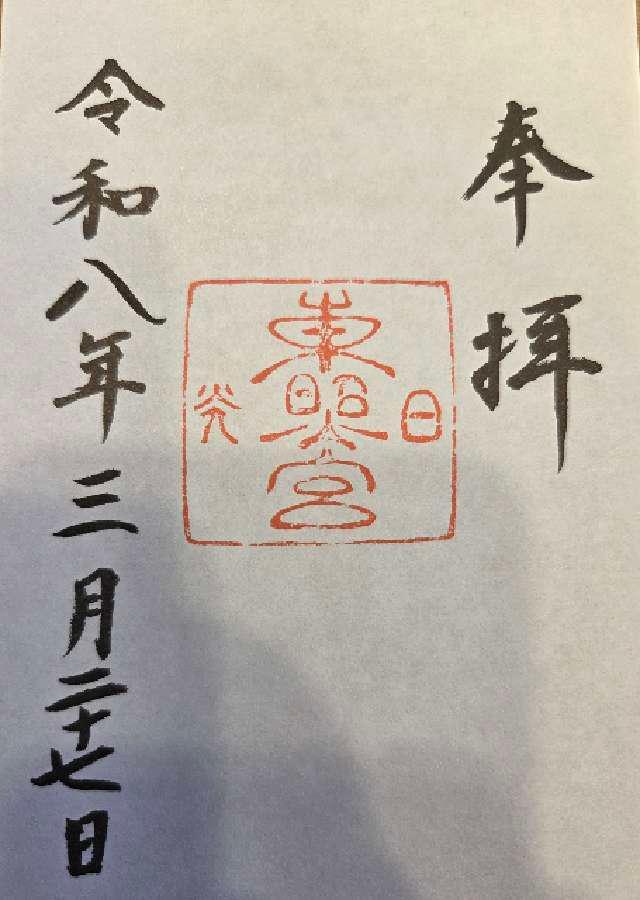 奉拝
日光
東照宮
令和八年三月二十七日